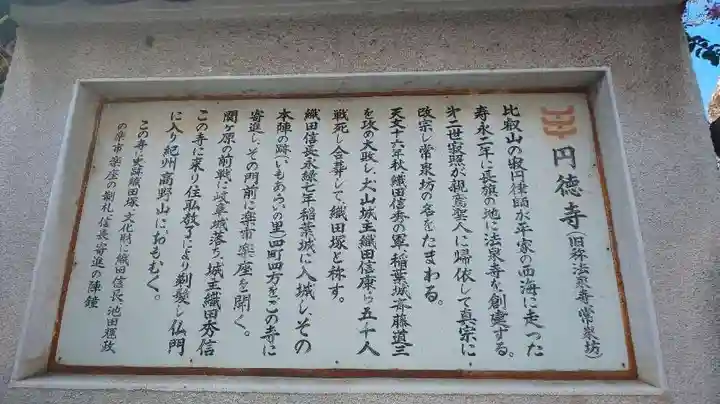 円徳寺(旧称法泉寺常泉坊)
比叡山の寂円律師が平家の西海に走った
寿永二年に長旗の地に法泉寺を創建する。
第二世寂照が親鸞聖人に帰依して真宗に
改宗し常泉坊の名をたまわる。
天文十六年秋織田信秀の軍、稲葉城斉藤道三
を攻め大敗し、犬山城主織田信康ら五千人
戦死し合葬して、織田塚と称す。
織田信長永禄七年稲葉城に入城し、その
本陣の跡(いもあらいの里)四町四方をこの寺に
寄進し、その門前に楽市楽座を開く。
関ヶ原の前戦に岐阜城落ち、城主織田秀信
この寺に来り住弘教了により剃髪し仏門
に入り紀州高野山におもむく。
この寺の史跡織田塚、文化財に織田信長、池田輝政
の楽市楽座の制札、信長寄進の陣鐘